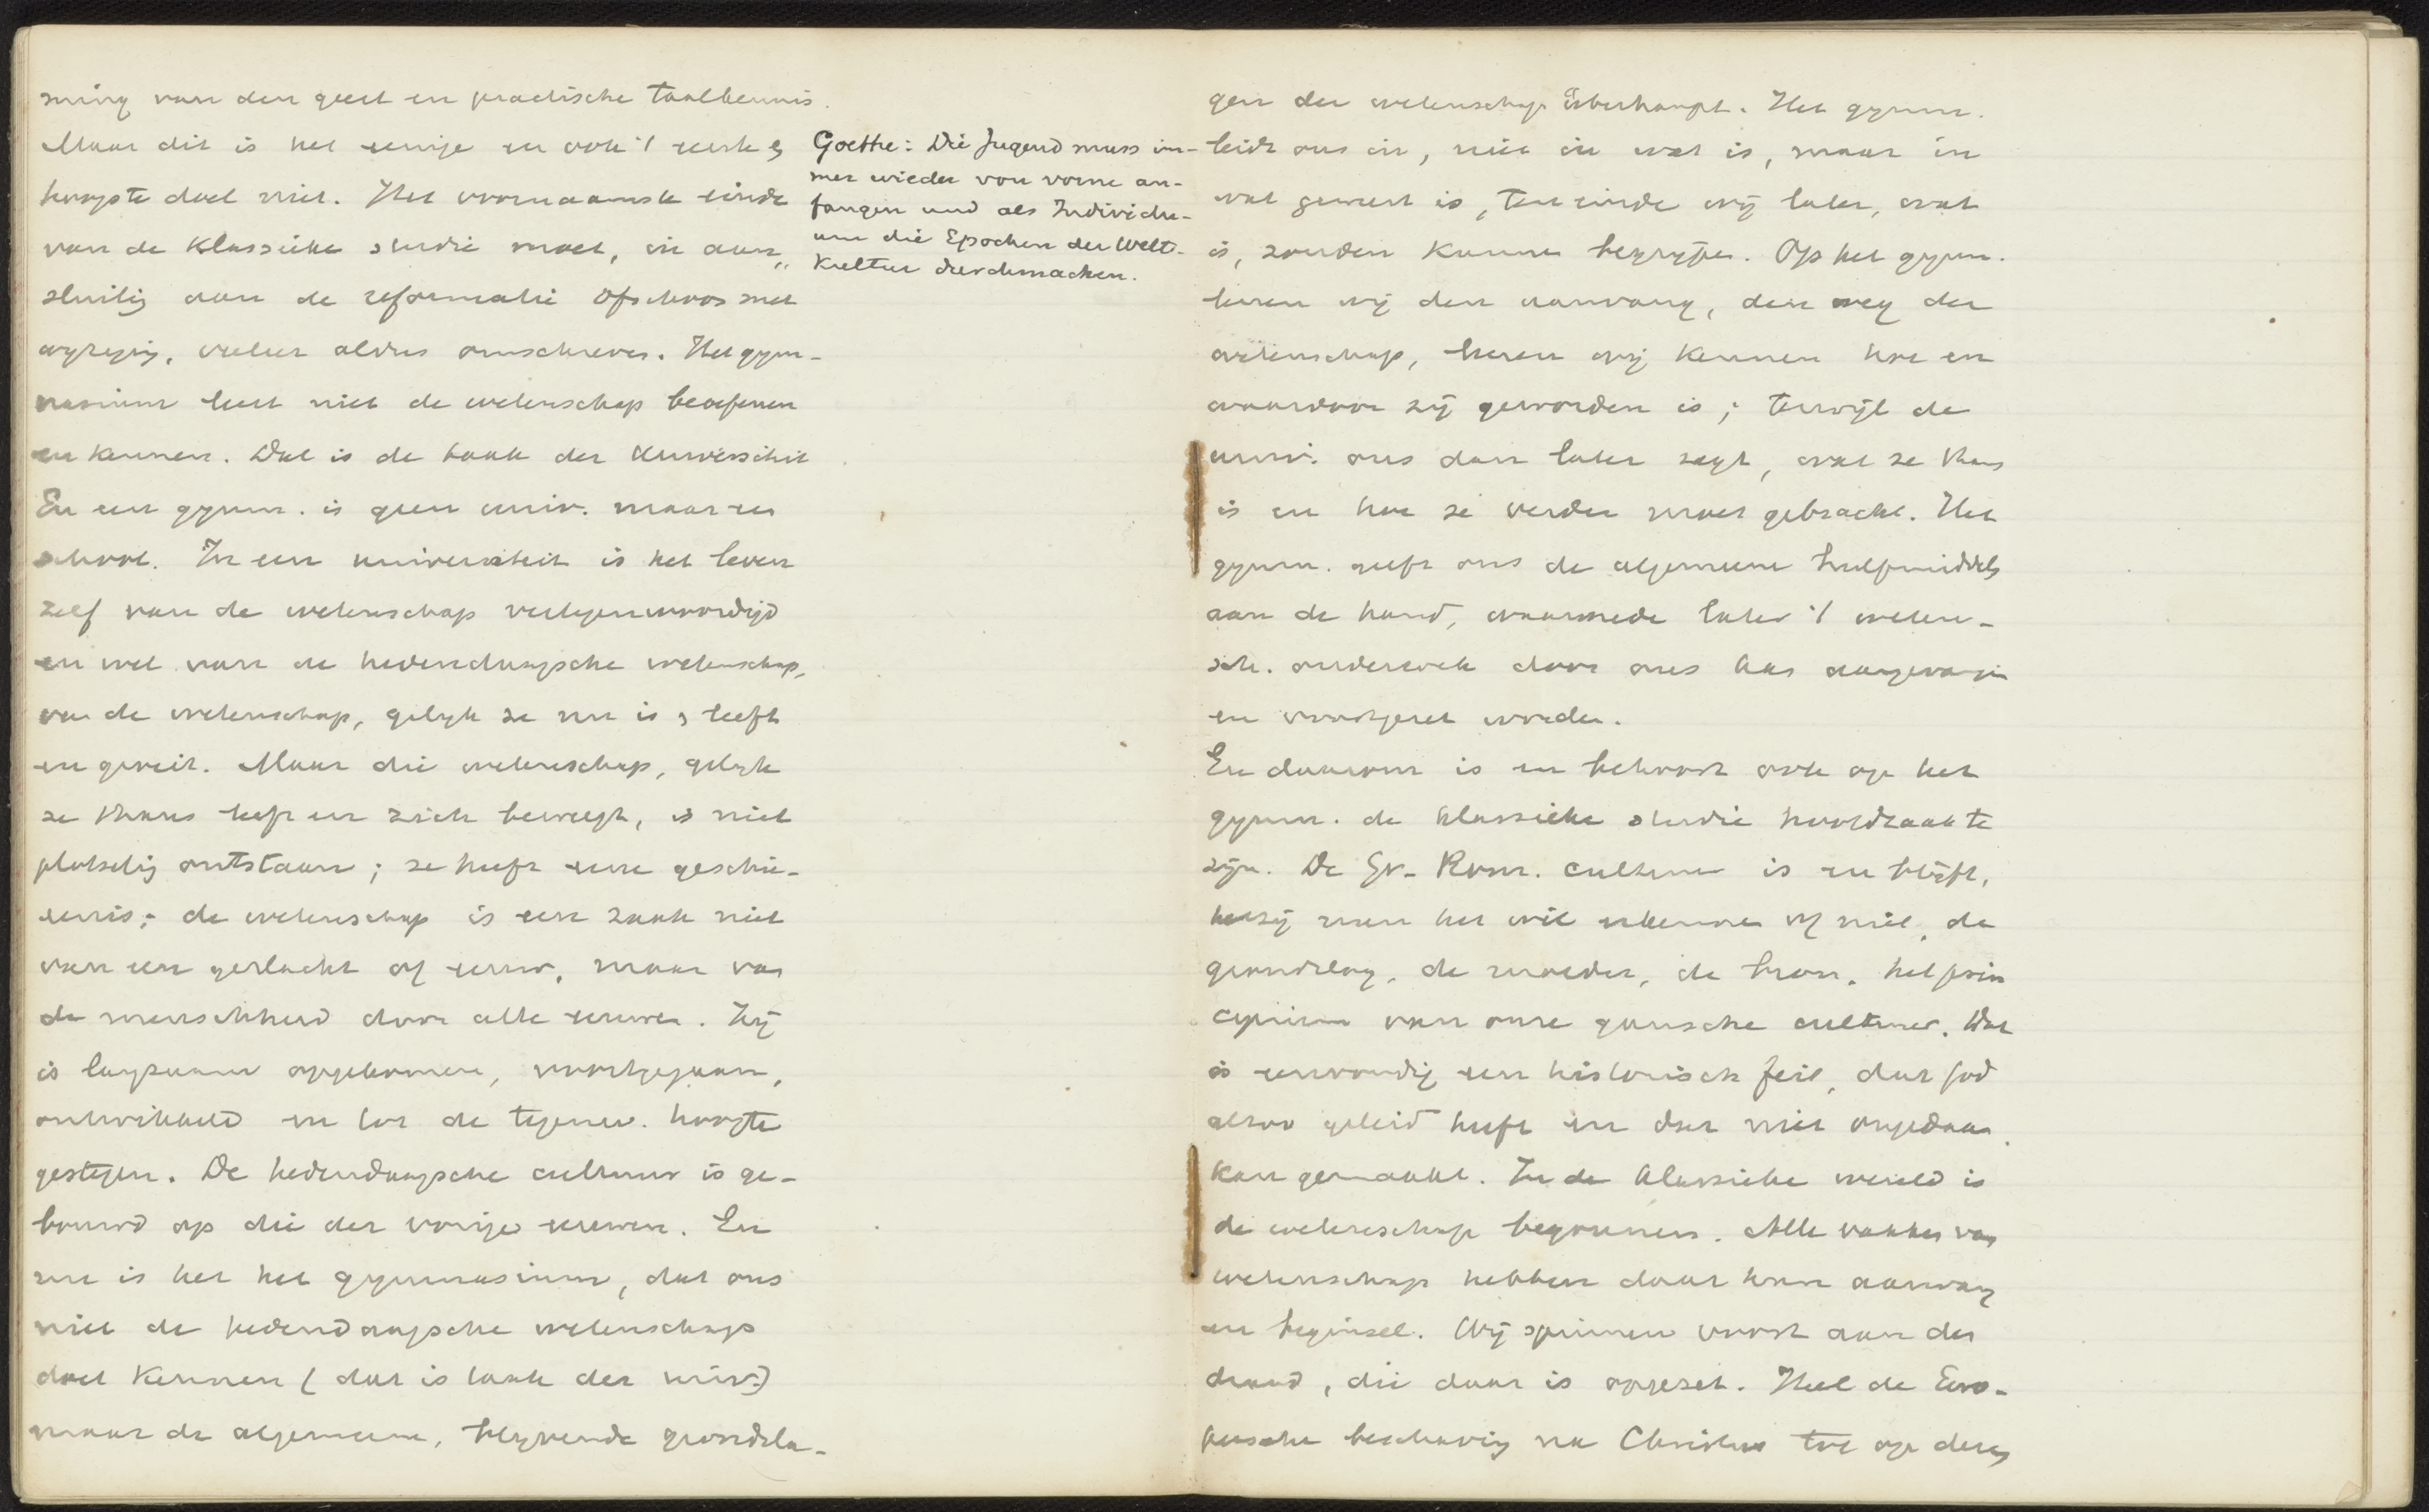 ming van den geest en practische taalkennis.
Maar dit is het eenige en ook 't eerste en
hoogste doel niet. Het voornaamste einde
van de klassieke studie moet, in aan„
sluiting aan de reformatie ofschoon met
wijziging, veeleer aldus omschreven. Het gym-
nasium leert niet de wetenschap beoefenen
en kennen. Dat is de taak der Universiteit
En een gymn. is geen univ. maar een
school. In een universiteit is het leven
zelf van de wetenschap vertegenwoordigd
en wel van de hedendaagsche wetenschap,
van de wetenschap, gelijk ze nu is en leeft
en groeit. Maar die wetenschap, gelijk
ze thans leeft en zich beweegt, is niet
plotseling ontstaan; ze heeft eene geschie-
denis; de wetenschap is een zaak niet
van een geslacht of eeuw, maar van
de menschheid door alle eeuwen. Zij
is langzaam opgekomen, voortgegaan,
ontwikkeld en tot de tegenw. hoogte
gestegen. De hedendaagsche cultuur is ge-
bouwd op die der vorige eeuwen. En
nu is het het gymnasium, dat ons
niet de hedendaagsche wetenschap
doet kennen (dat is taak der univ.)
maar de algemeene, blijvende grondsla-
Goethe: Die Jugend muss im-
mer wieder von vorne an-
fangen und als Individu-
um die Epochen der Welt-
Kultur durchmachen.
gen der wetenschap überhaupt. Het gymn.
leidt ons in, niet in wat is, maar in
wat geweest is, ten einde wij later, wat
is, zouden kunnen begrijpen. Op het gymn.
leeren wij den aanvang, den weg der
wetenschap, leeren wij kennen hoe en
waardoor zij geworden is; terwijl de
univ. ons dan later zegt, wat ze thans
is en hoe ze verder moet gebracht. Het
gymn. geeft ons de algemeene hulpmiddelen
aan de hand, waarmede later 't weten-
sch. onderzoek door ons kan aangevangen
en voortgezet worden.
En daarom is en behoort ook op het
gymn. de klassieke studie hoofdzaak te
zijn. De Gr.-Rom. cultuur is en blijft,
hetzij men het wil erkennen of niet, de
grondslag, de moeder, de bron, het prin
cipium van onze gansche cultuur. Dat
is eenvoudig een historisch feit, dat God
alzoo geleid heeft en dat niet ongedaan
kan gemaakt. In de klassieke wereld is
de wetenschap begonnen. Alle vakken van
wetenschap hebben daar hun aanvang
en beginsel. Wij spinnen voort aan den
draad, die daar is opgezet. Heel de Euro-
peesche beschaving na Christus tot op dezen